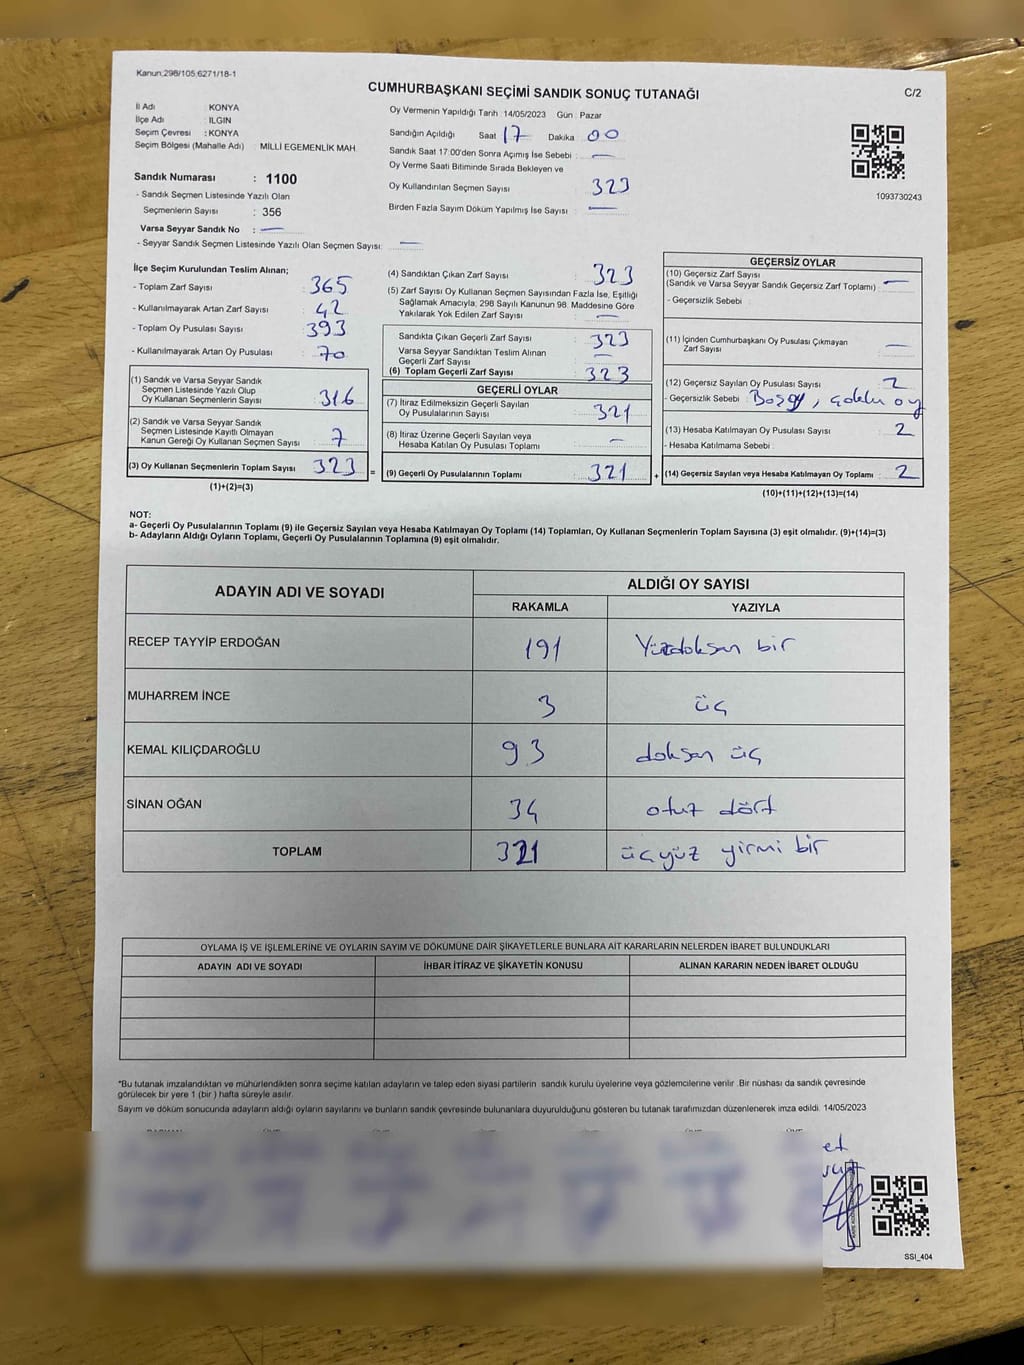 Kanun:298/105,6271/18-1
CUMHURBAŞKANI SEÇİMİ SANDIK SONUÇ TUTANAĞI
C/2
İl Adı : KONYA
İlçe Adı : ILGIN
Seçim Çevresi : KONYA
Seçim Bölgesi (Mahalle Adı) : MİLLİ EGEMENLİK MAH.
Sandık Numarası : 1100
- Sandık Seçmen Listesinde Yazılı Olan
Seçmenlerin Sayısı : 356
Varsa Seyyar Sandık No : —
- Seyyar Sandık Seçmen Listesinde Yazılı Olan Seçmen Sayısı: —
Oy Vermenin Yapıldığı Tarih : 14/05/2023 Gün : Pazar
Sandığın Açıldığı Saat 17 Dakika 00
Sandık Saat 17:00'den Sonra Açımış İse Sebebi : —
Oy Verme Saati Bitiminde Sırada Bekleyen ve
Oy Kullandırılan Seçmen Sayısı : 323
Birden Fazla Sayım Döküm Yapılmış İse Sayısı : —
1093730243
İlçe Seçim Kurulundan Teslim Alınan;
- Toplam Zarf Sayısı : 365
- Kullanılmayarak Artan Zarf Sayısı : 42
- Toplam Oy Pusulası Sayısı : 393
- Kullanılmayarak Artan Oy Pusulası : 70
(1) Sandık ve Varsa Seyyar Sandık
Seçmen Listesinde Yazılı Olup
Oy Kullanan Seçmenlerin Sayısı : 316
(2) Sandık ve Varsa Seyyar Sandık
Seçmen Listesinde Kayıtlı Olmayan
Kanun Gereği Oy Kullanan Seçmen Sayısı : 7
(3) Oy Kullanan Seçmenlerin Toplam Sayısı : 323 =
(1)+(2)=(3)
(4) Sandıktan Çıkan Zarf Sayısı : 323
(5) Zarf Sayısı Oy Kullanan Seçmen Sayısından Fazla İse, Eşitliği
Sağlamak Amacıyla, 298 Sayılı Kanunun 98. Maddesine Göre
Yakılarak Yok Edilen Zarf Sayısı : —
Sandıkta Çıkan Geçerli Zarf Sayısı : 323
Varsa Seyyar Sandıktan Teslim Alınan
Geçerli Zarf Sayısı : —
(6) Toplam Geçerli Zarf Sayısı : 323
GEÇERLİ OYLAR
(7) İtiraz Edilmeksizin Geçerli Sayılan
Oy Pusulalarının Sayısı : 321
(8) İtiraz Üzerine Geçerli Sayılan veya
Hesaba Katılan Oy Pusulası Toplamı : —
(9) Geçerli Oy Pusulalarının Toplamı : 321 +
GEÇERSİZ OYLAR
(10) Geçersiz Zarf Sayısı
(Sandık ve Varsa Seyyar Sandık Geçersiz Zarf Toplamı) : —
- Geçersizlik Sebebi :
(11) İçinden Cumhurbaşkanı Oy Pusulası Çıkmayan
Zarf Sayısı : —
(12) Geçersiz Sayılan Oy Pusulası Sayısı : 2
- Geçersizlik Sebebi : oy
(13) Hesaba Katılmayan Oy Pusulası Sayısı : 2
- Hesaba Katılmama Sebebi :
(14) Geçersiz Sayılan veya Hesaba Katılmayan Oy Toplamı : 2
(10)+(11)+(12)+(13)=(14)
NOT:
a- Geçerli Oy Pusulalarının Toplamı (9) ile Geçersiz Sayılan veya Hesaba Katılmayan Oy Toplamı (14) Toplamları, Oy Kullanan Seçmenlerin Toplam Sayısına (3) eşit olmalıdır. (9)+(14)=(3)
b- Adayların Aldığı Oyların Toplamı, Geçerli Oy Pusulalarının Toplamına (9) eşit olmalıdır.
ADAYIN ADI VE SOYADI
ALDIĞI OY SAYISI
RAKAMLA YAZIYLA
RECEP TAYYİP ERDOĞAN 191 Yüzdoksan bir
MUHARREM İNCE 3 üç
KEMAL KILIÇDAROĞLU 93 doksan üç
SİNAN OĞAN 34 otuz dört
TOPLAM 321 üçyüz yirmi bir
OYLAMA İŞ VE İŞLEMLERİNE VE OYLARIN SAYIM VE DÖKÜMÜNE DAİR ŞİKAYETLERLE BUNLARA AİT KARARLARIN NELERDEN İBARET BULUNDUKLARI
ADAYIN ADI VE SOYADI İHBAR İTİRAZ VE ŞİKAYETİN KONUSU ALINAN KARARIN NEDEN İBARET OLDUĞU
*Bu tutanak imzalandıktan ve mühürlendikten sonra seçime katılan adayların ve talep eden siyasi partilerin sandık kurulu üyelerine veya gözlemcilerine verilir. Bir nüshası da sandık çevresinde
görülecek bir yere 1 (bir) hafta süreyle asılır.
Sayım ve döküm sonucunda adayların aldığı oyların sayılarını ve bunların sandık çevresinde bulunanlara duyurulduğunu gösteren bu tutanak tarafımızdan düzenlenerek imza edildi. 14/05/2023
SSI_404